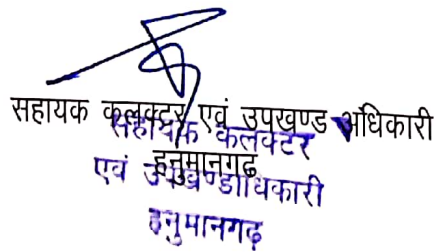 सहायक कलक्टर एवं उपखण्ड अधिकारी
हनुमानगढ़
सहायक कलक्टर
एवं उपखण्डाधिकारी
हनुमानगढ़